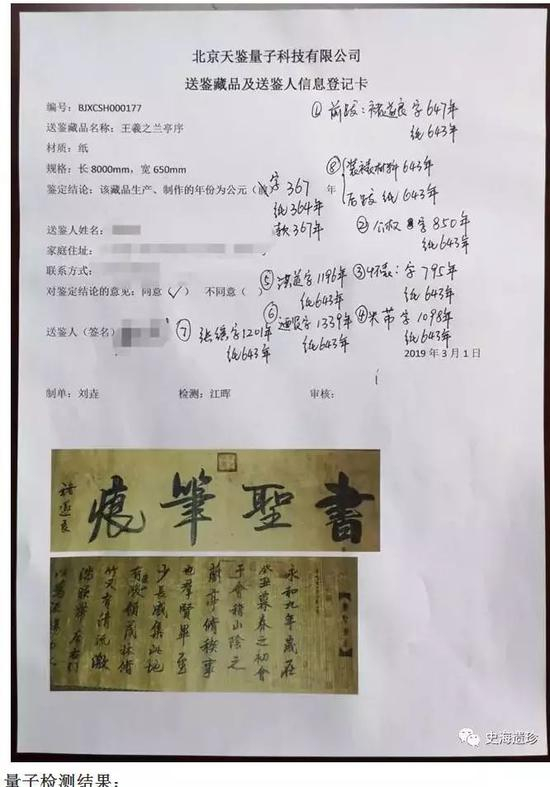 北京天鉴量子科技有限公司
送鉴藏品及送鉴人信息登记卡
编号：BJXCSH000177
①前跋：褚遂良 字 647年
纸 643年
送鉴藏品名称：王羲之兰亭序
材质：纸
规格：长 8000mm，宽 650mm
⑧装裱材料 643年
后跋 纸 643年
鉴定结论：该藏品生产、制作的年份为公元（前）字 367 年
纸 364年
款 367年
②公权 字 850年
纸 643年
送鉴人姓名：
家庭住址：
联系方式：
③怀素：字 795年
纸 643年
⑤洪适 字 1196年
纸 643年
对鉴定结论的意见：同意（✓） 不同意（ ）
④米芾 字 1098年
纸 643年
⑥ 字 1339年
纸 643年
⑦ 字 1201年
纸 643年
送鉴人（签名）
2019 年 3 月 1 日
制单：刘垚 检测：江晖 审核：
書聖筆痕
褚遂良
永和九年歲在
癸丑暮春之初會
于會稽山陰之
蘭亭脩稧事
也羣賢畢至
少長咸集此地
有峻領茂林脩
竹又有清流激
湍暎帶左右引
史海遗珍
量子检测结果：